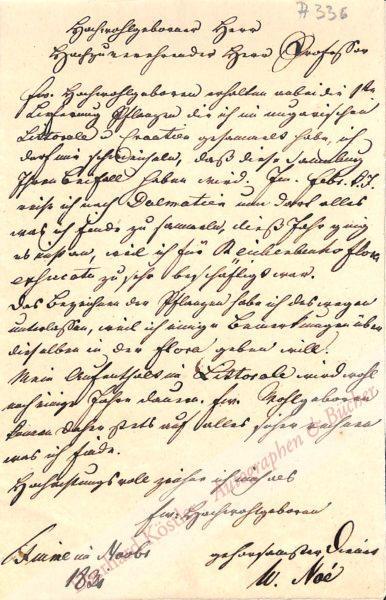 # 336
Hochwohlgeborner Herr
Hochzuverehrender Herr Professor
Ew. Hochwohlgeboren erhalten anbei die 1te
Lieferung Pflanzen die ich im ungarischen
Littorale u Croatien gesammelt habe, ich
darf mir schmeicheln, daß diese Sammlung
Ihren Beifall haben wird. Im Febr. k. J.
reise ich nach Dalmatien um dort alles
was ich finde zu sammeln, dieß Jahr ging
es nicht an, weil ich für Reichenbachs flora
exsiccata zu sehr beschäftigt war.
Das Bezeichnen der Pflanzen habe ich deswegen
unterlassen, weil ich einige Bemerkungen über
dieselben in der Flora geben will.
Mein Aufenthalt im Littorale wird wohl
noch einige Jahre dauern. Ew. Wohlgeboren
können daher stets auf alles sicher rechnen
was ich finde.
Hochachtungsvoll zeichne ich mich als
Ew. Hochwohlgeboren
Fiume im Novbr
gehorsamster Diener
W. Noé
Gerhard Köstler Autographen & Bücher